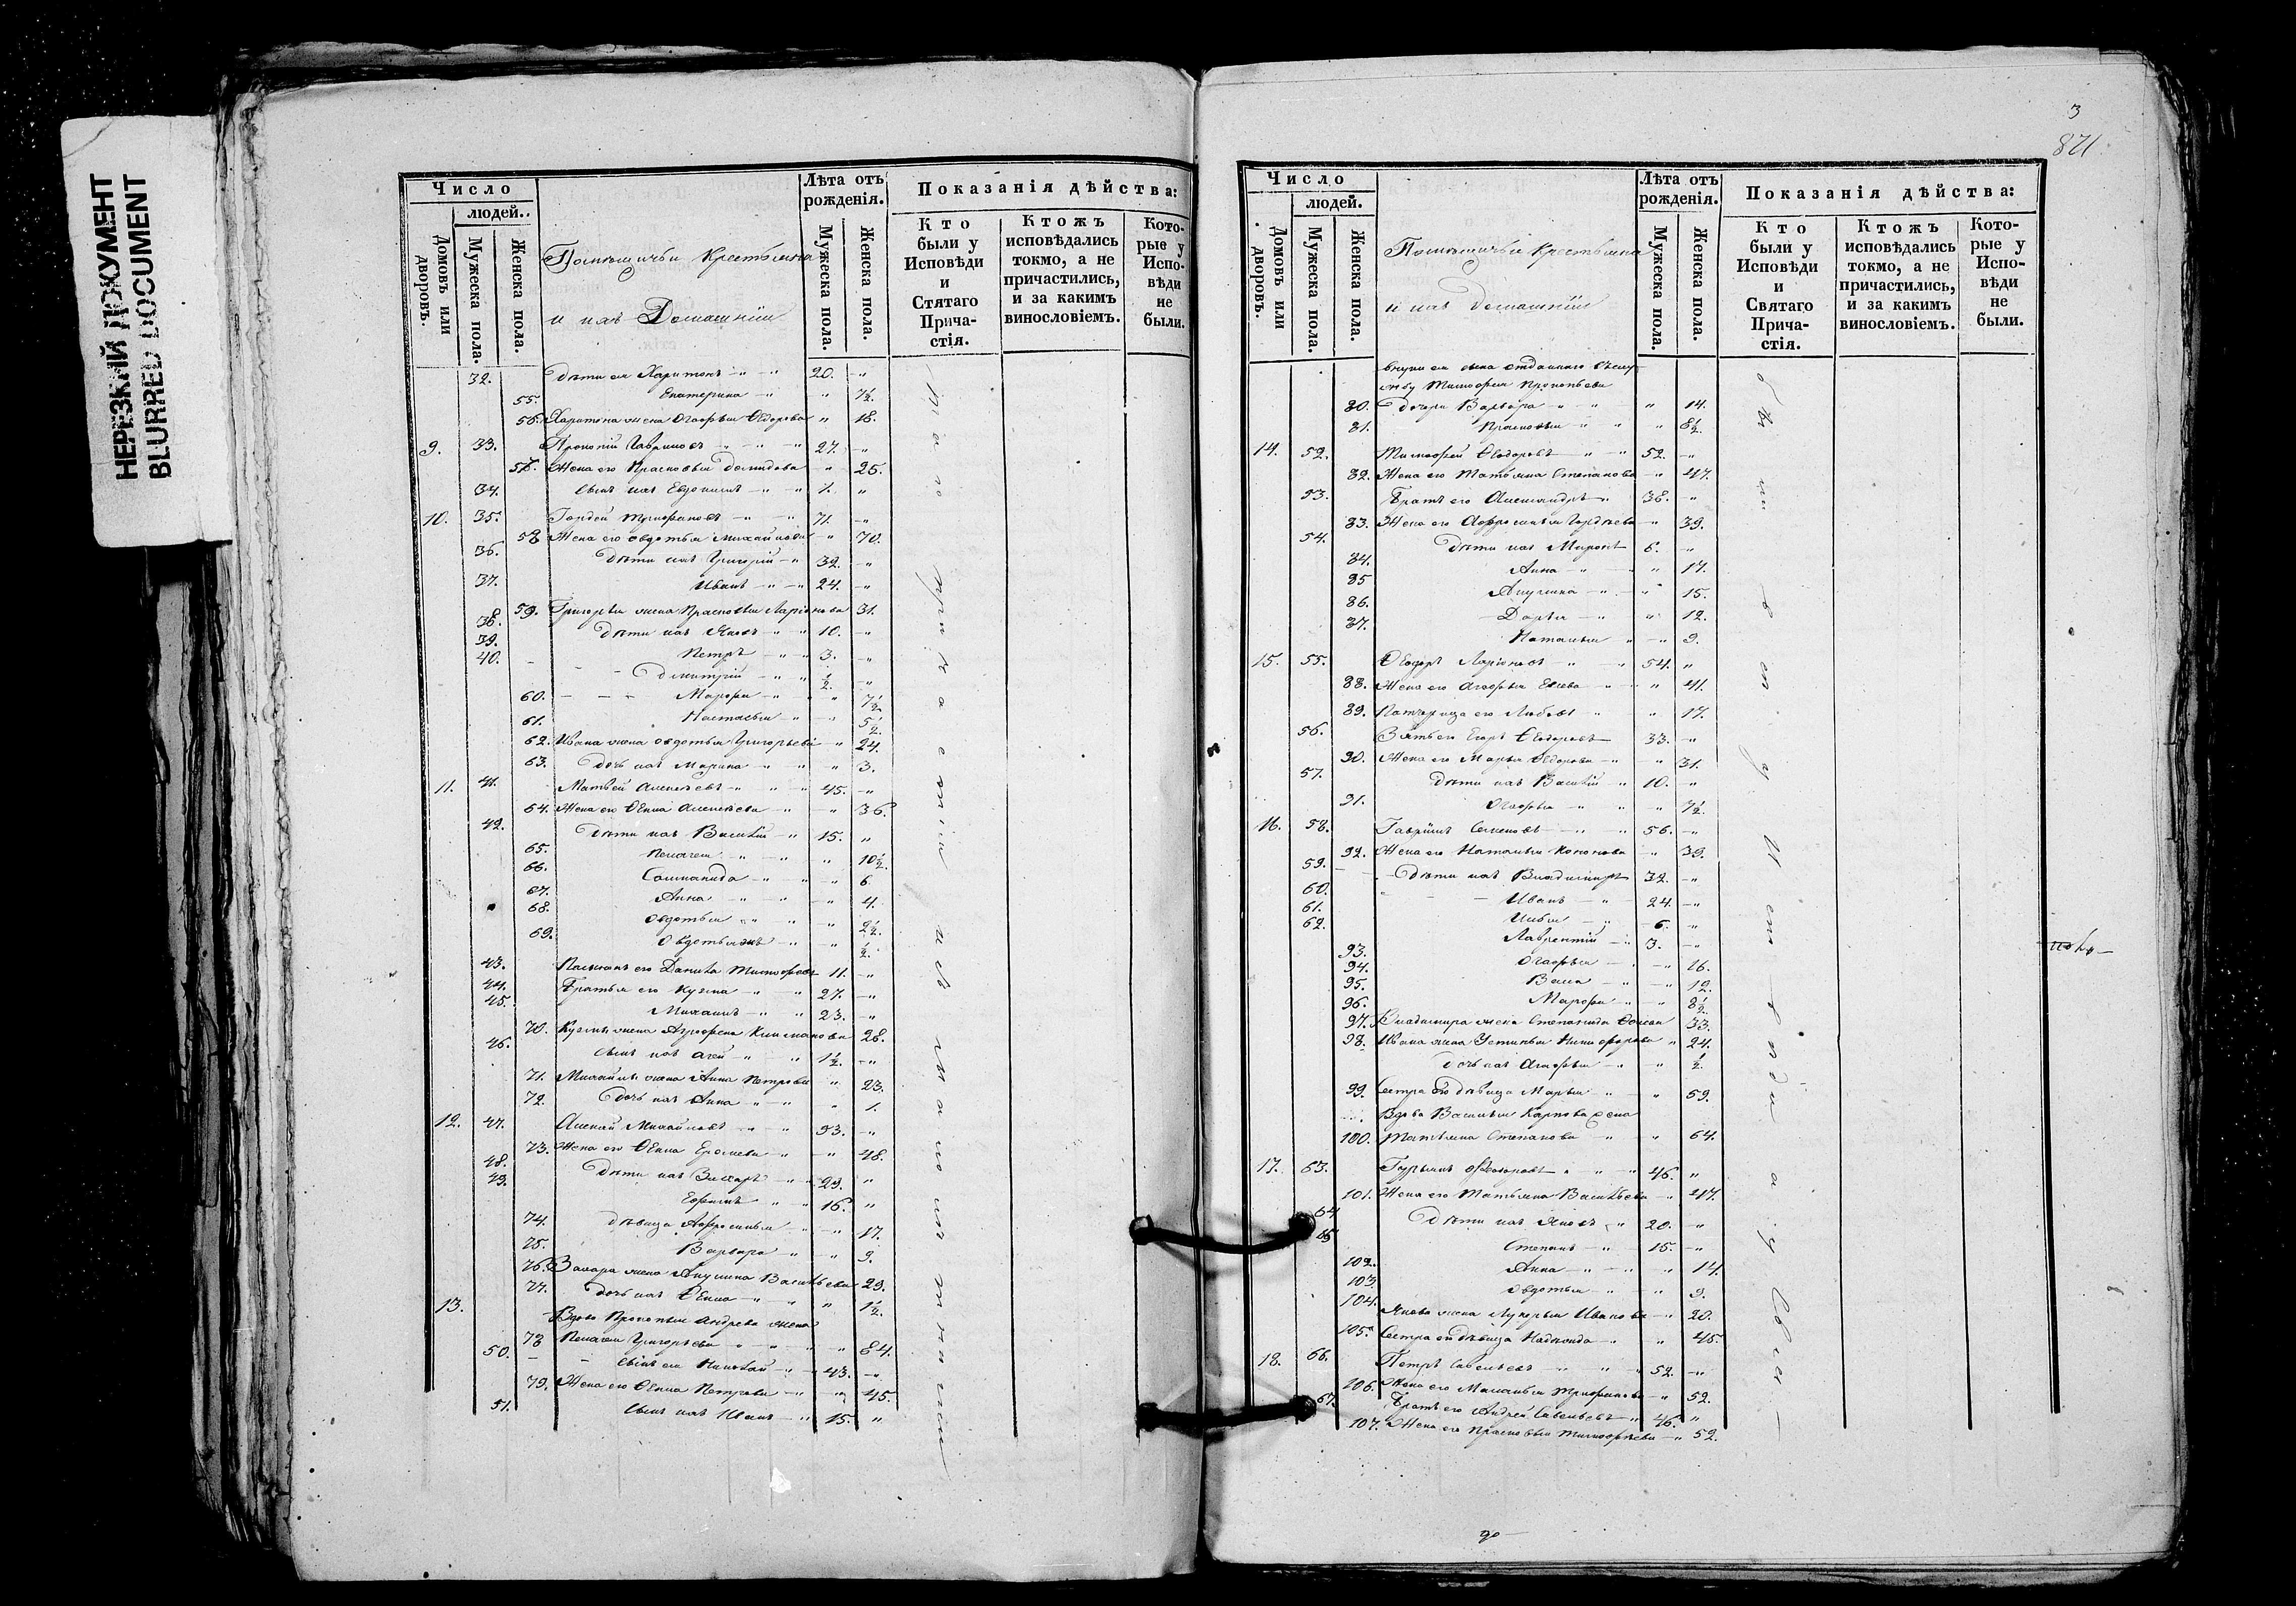 НЕРЕЗКИЙ ДОКУМЕНТ
BLURRED DOCUMENT
Число
людей.
Домовъ или дворовъ.
Мужеска пола.
Женска пола.
Помѣщичьи Крестьяна
и ихъ Домашніи
Лѣта отъ рожденія.
Мужеска пола.
Женска пола.
Показанія дѣйства:
Кто были у Исповѣди и Стятаго Прича-стія.
Ктожъ исповѣдались токмо, а не причастились, и за какимъ винословіемъ.
Кото-рые у Испо-вѣди не были.
32. Дѣти ея Харитонъ 20.
55. Екатерина 7½.
56. Харитона жена Агафья Ѳедорова 18.
9. 33. Прокопій Гавриловъ 27.
57. Жена его Прасковья Демидова 25.
34. Сынъ ихъ Евдокимъ 1.
10. 35. Гордей Трифоновъ 71.
58 Жена его Овдотья Михайлова 70.
36. Дѣти ихъ Григорій 32.
37. Иванъ 24.
59. Григорья жена Прасковья Ларіонова 31.
38. Дѣти ихъ Яковъ 10.
39. Петръ 3.
40. Дмитрій ½.
60. Марфа 7½
61. Настасья 5½
62. Ивана жена Овдотья Григорьева 24.
63. Дочь ихъ Марина 3.
11. 41. Матвей Алексѣевъ 45.
64. Жена его Ѳекла Алексѣева 36.
42. Дѣти ихъ Василій 15.
65. Пелагея 10½.
66. Соломанида 6.
67. Анна 4.
68. Овдотья 2½.
69. Овдотья ½.
43. Данила Тимофеевъ 11.
44. Братья его Кузма 27.
45. Михаилъ 23.
70. Кузмы жена Агрофена 28.
46. Сынъ ихъ 1½.
71. Михайлы жена Анна Петрова 23.
72. Дочь ихъ Анна 1.
12. 47. Алексѣй Михайловъ 53.
73. Жена его Ѳекла 48.
48. Дѣти ихъ Захаръ 29.
49. Ефимъ 16.
74. Дѣвица Афросинья 17.
75. Варвара 9.
76. Захара жена Акулина Васильева 29.
77. Дочь ихъ Ѳекла 1½.
13. Вдова Прокопья Андреева жена
78 Пелагея Григорьева 64.
50. Сынъ ея Николай 43.
79. Жена его Ѳекла Петрова 45.
51. Сынъ ихъ 15.
3
821
Число
людей.
Домовъ или дворовъ.
Мужеска пола.
Женска пола.
Помѣщичьи Крестьяна
и ихъ Домашніи
Лѣта отъ рожденія.
Мужеска пола.
Женска пола.
Показанія дѣйства:
Кто были у Исповѣди и Святаго Прича-стія.
Ктожъ исповѣдались токмо, а не причастились, и за какимъ винословіемъ.
Кото-рые у Испо-вѣди не были.
Тимофея Прокопьева
80. Дочери Варвара 14.
81. Прасковья 8½.
14. 52. Тимофей Ѳедоровъ 52.
82. Жена его Татьяна Степанова 47.
53. Братъ его Александръ 38.
83. Жена его Афросинья Гордѣева 39.
54. Дѣти ихъ Миронъ 6.
84. Анна 17.
85 Акулина 15.
86. Дарья 12.
87. Наталья 9.
15. 55. Ѳедоръ Ларіоновъ 54.
88. Жена его Агафья 41.
89. Патчерица его Любовь 17.
56. Зять его Егоръ Ѳедоровъ 33.
90. Жена его Марья Ѳедорова 31.
57. Дѣти ихъ Василій 10.
91. Агафья 7½.
16. 58. Гаврiилъ Семеновъ 56.
92. Жена его Наталья Кононова 39.
59. Дѣти ихъ Владимиръ 32.
60. Иванъ 24.
61. Илья 6.
62. Лаврентій 3.
93. Агафья 16.
94. 12.
95. Марфа 8½
96.
97. Владимира жена Степанида 33.
98. Ивана жена Устинья Никифорова 24.
дочь ихъ Агафья ½.
99. Сестра его дѣвица Марья 59.
Вдова Василья Карпова жена
100. Татьяна Степанова 64.
17. 63. Ѳедоровъ 46.
101. Жена его Татьяна Васильева 47.
64 Дѣти ихъ Яковъ 20.
65 Степанъ 15.
102. Анна 14.
103. Овдотья 9.
104. Якова жена Лукерья Иванова 20.
105. Сестра ея дѣвица 45.
18. 66. Петръ Савельевъ 52.
106. Жена его Маланья Трифонова 52.
67. Братъ его Андрей Савельевъ 46.
107. Жена его Прасковья Тимофѣева 52.